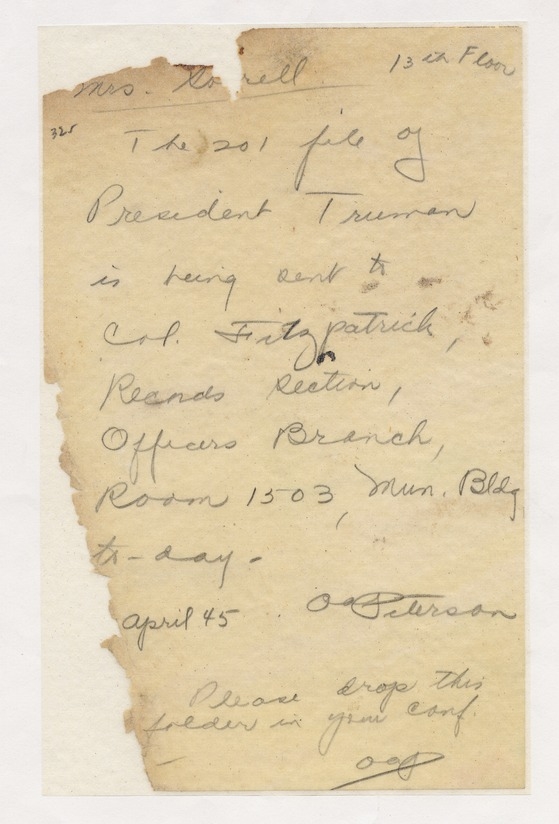 Mrs. Sorrell 13th Floor
325
The 201 file of
President Truman
is being sent to
Col. Fitzpatrick,
Records Section,
Officers Branch,
Room 1503, Mun. Bldg
to-day -
April 45 Peterson
Please drop this
folder in your conf.